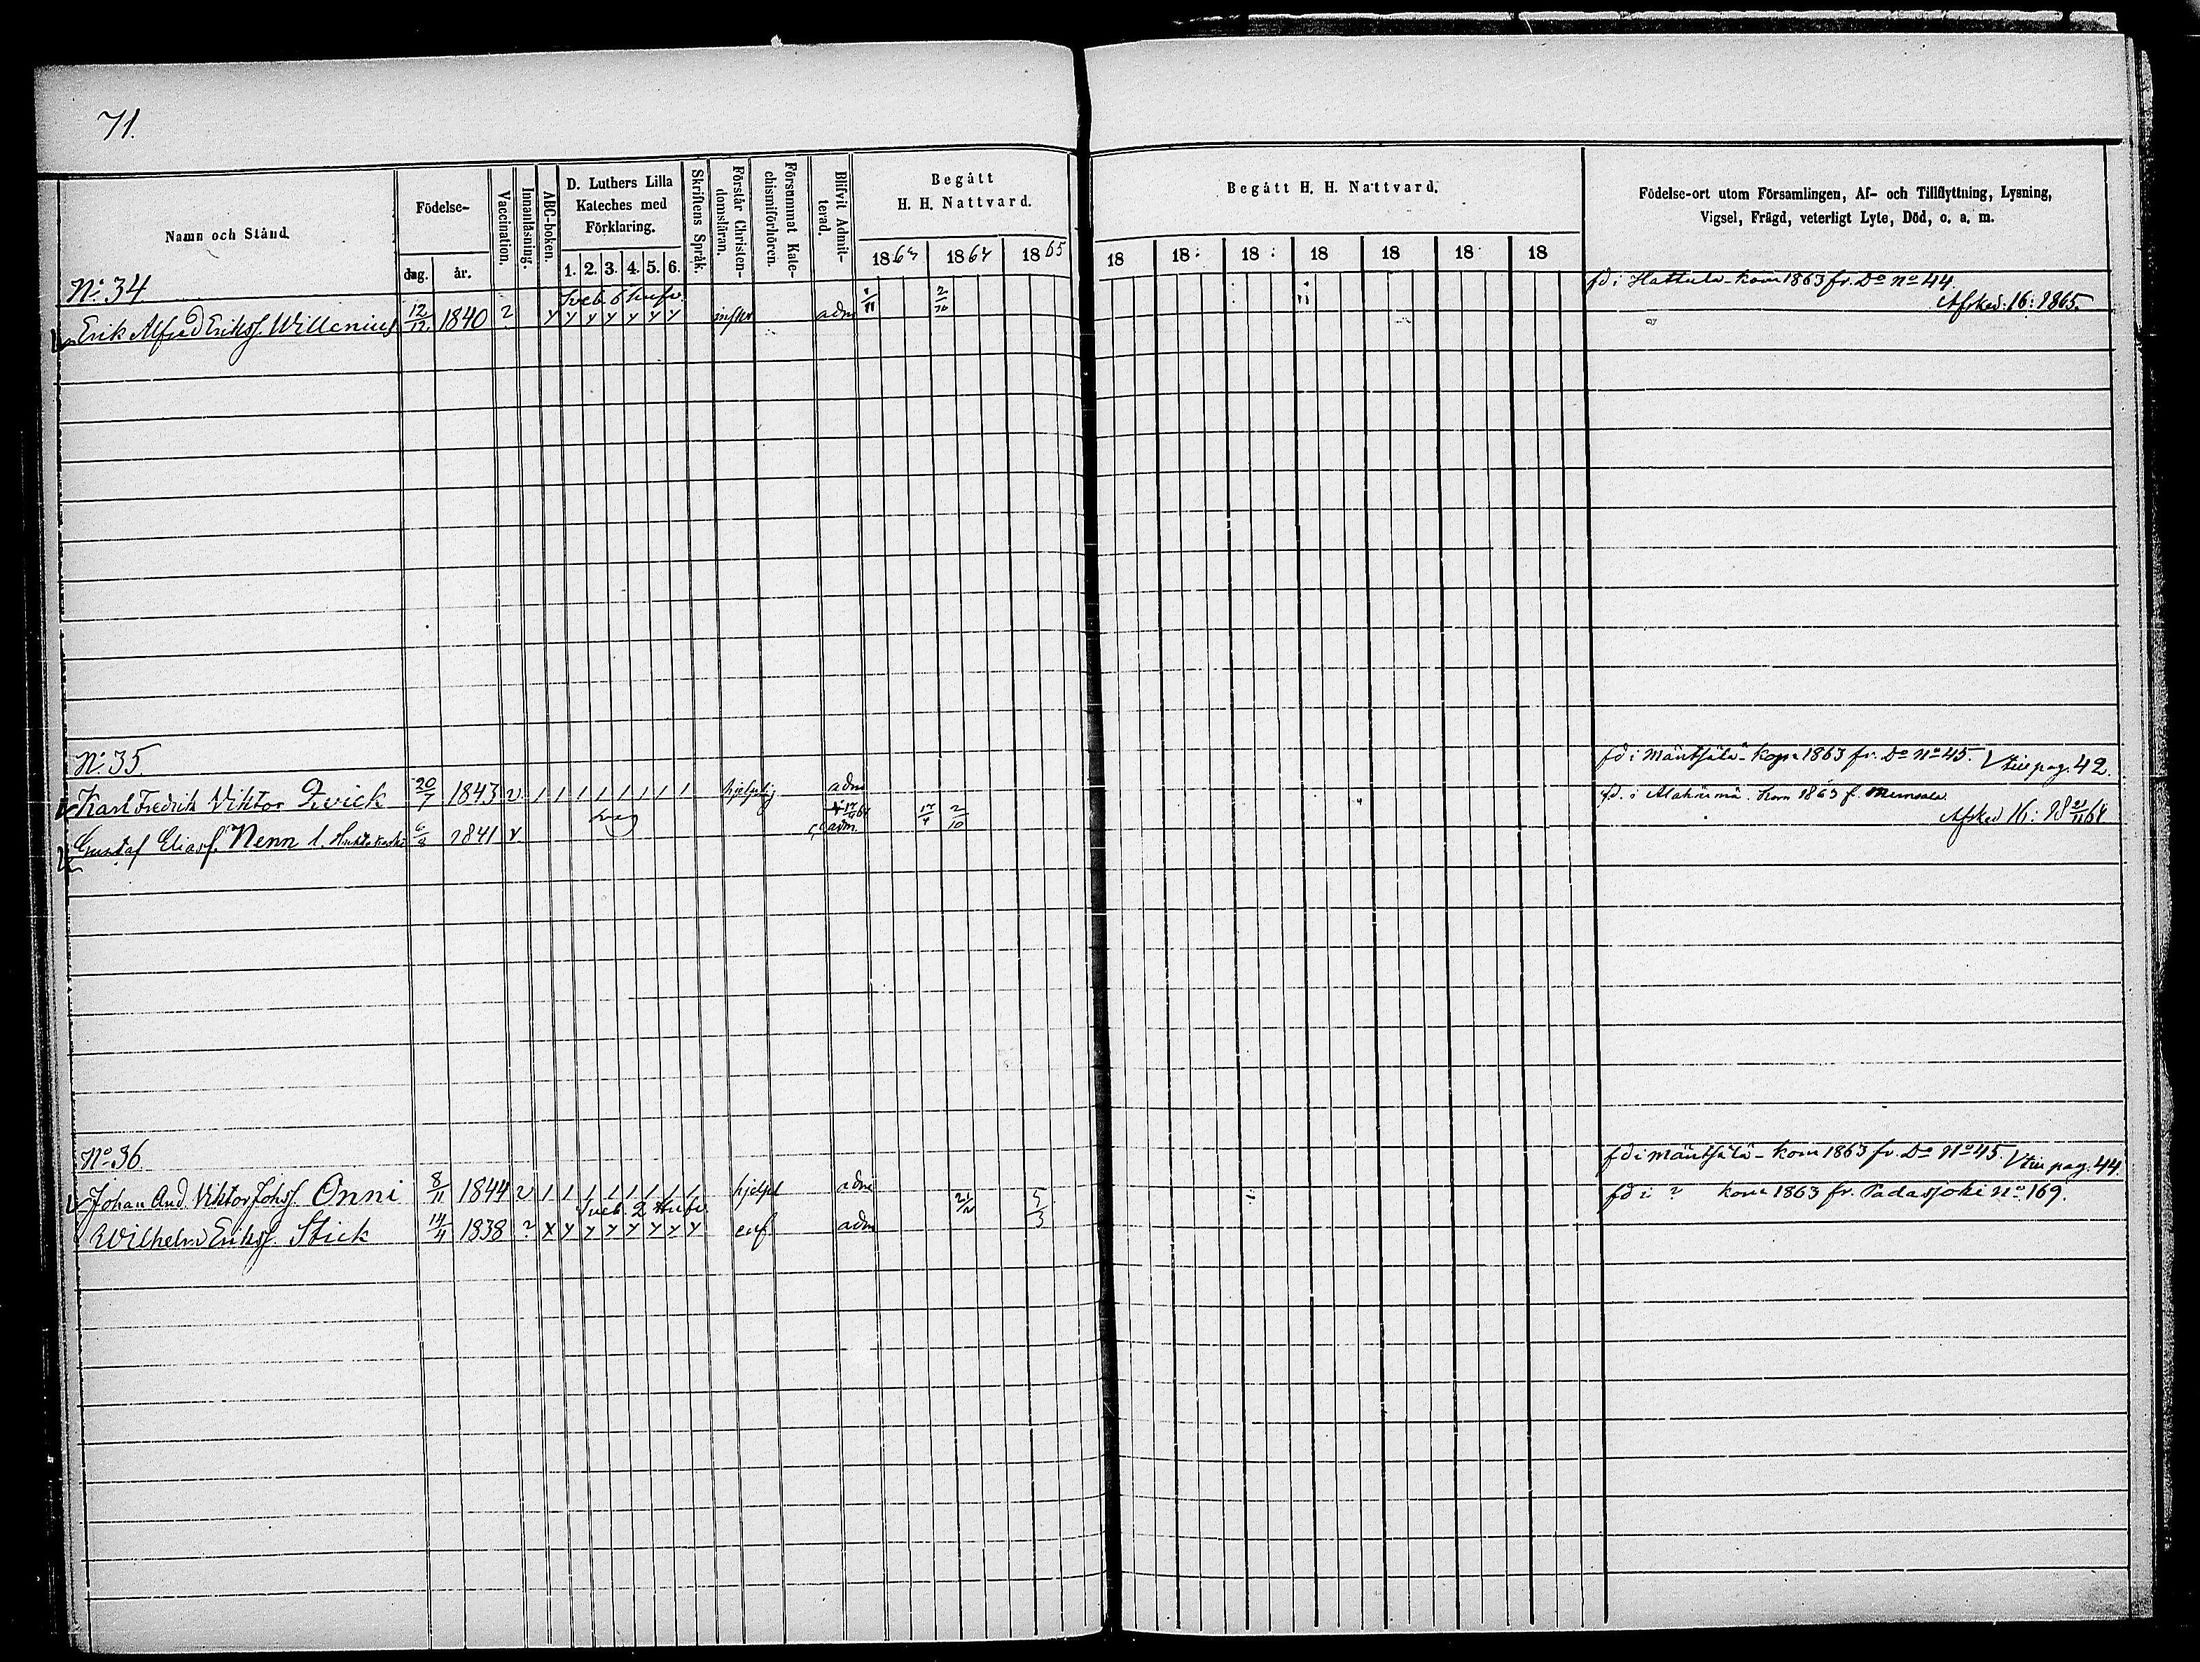 71.
Namn och Stånd.
Födelse-
dag. år.
Vaccination.
Innanläsning.
ABC-boken.
D. Luthers Lilla
Kateches med
Förklaring.
1. 2. 3. 4. 5. 6.
Skriftens Språk.
Förstår Christen-
domsläran.
Försummat Kate-
chismiförhören.
Blifvit Admit-
terad.
Begått
H. H. Nattvard.
1863 1864 1865
Begått H. H. Nattvard.
18 18 18 18 18 18 18
Födelse-ort utom Församlingen, Af- och Tillflyttning, Lysning,
Vigsel, Frägd, veterligt Lyte, Död, o. a. m.
No 34
fd i Hattula kom 1863 fr. Do No 44.
Afsked. 16: 1865.
Sveb. 6 hufv.
Erik Alfred Erikss. Willenius 12/12 1840 ? y y y y y y y adm 1/11 2/10
No 35.
fd i Mäntsälä kom 1863 fr. Do No 45. V. tue pag. 42.
Karl Fredrik Viktor Qvick 20/7 1843 v. 1 1 1 1 1 1 1 1 hjelplig adm
fd. i Alahärmä. kom 1863 f.
Afsked 16: 18 21/11 64
Gustaf Eliass. Nenn 6/3 1841 v. adm. 17/4 2/10
No 36.
fd i Mäntsälä kom 1863 fr. Do No 45. V. tue pag. 44.
Johan And. Viktor Johss. Onni 8/11 1844 v 1 1 1 1 1 1 1 1 hjelpl adm
fd i ? kom 1863 fr. Padasjoki No 169.
Sveb. 2 Hufv.
Wilhelm Erikss. Stick 14/4 1838 ? x y y y y y y y enf. adm 5/3